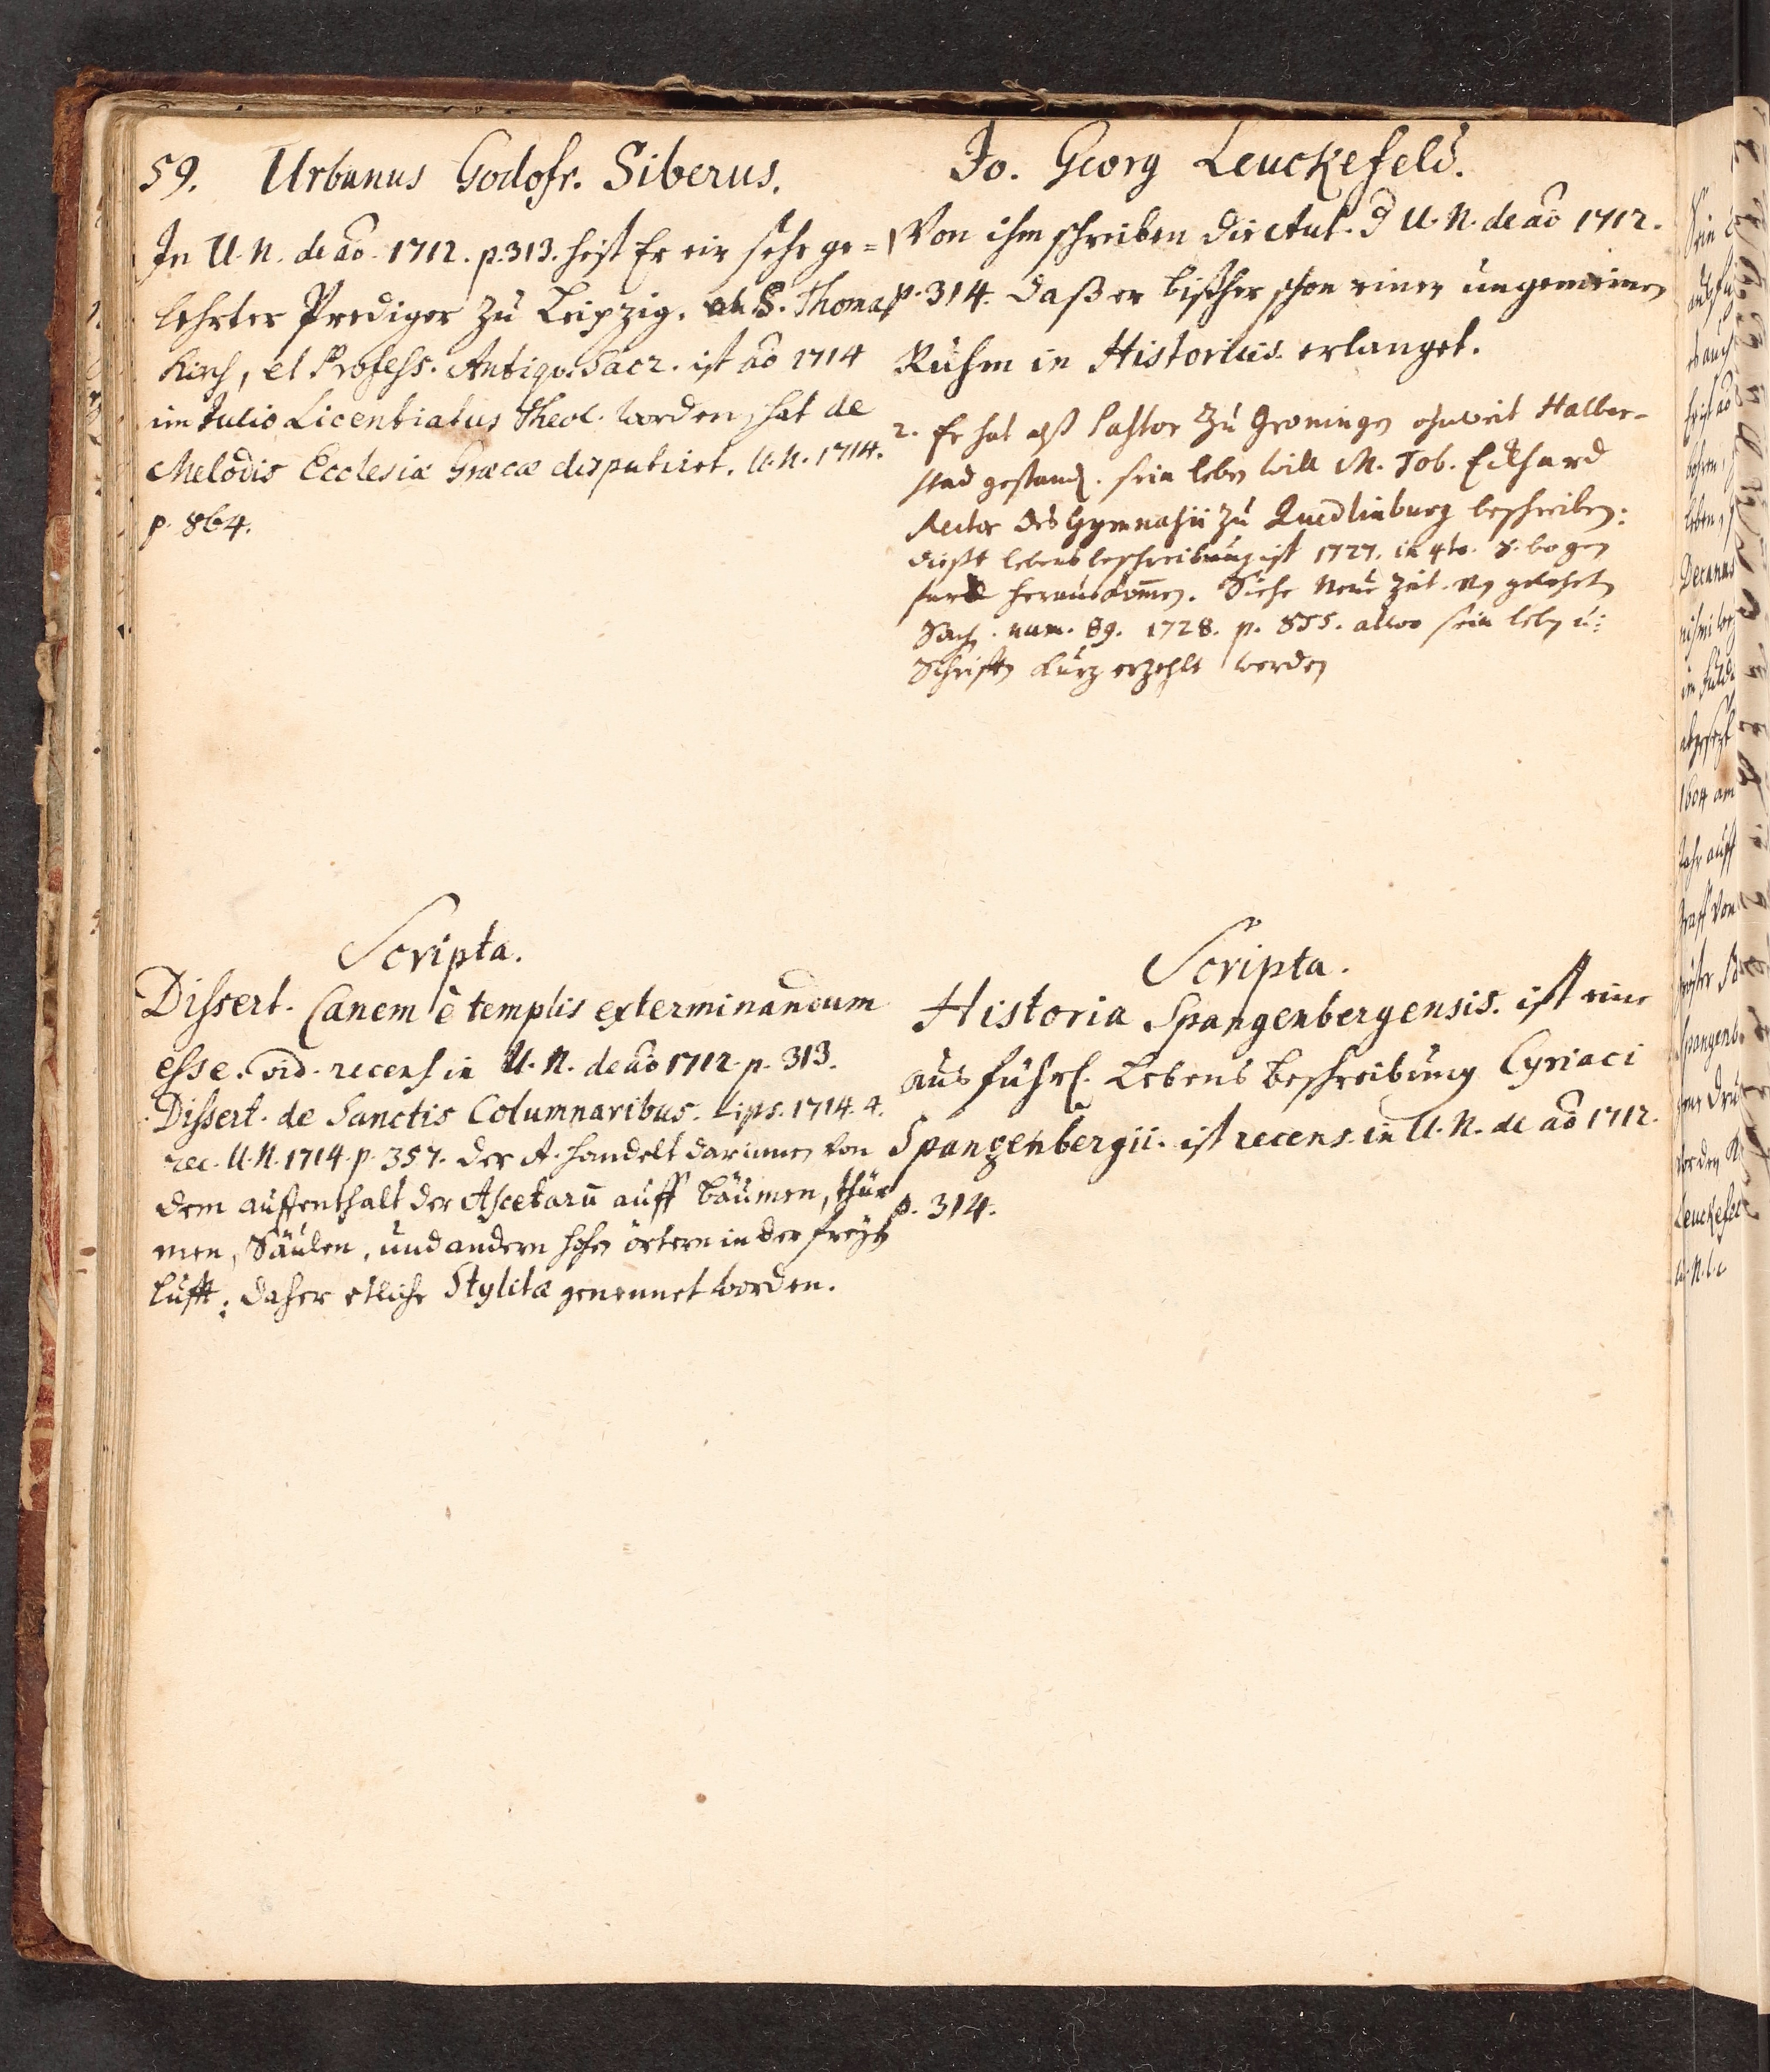 59. Urbanus Godofr. Siberus.
In U. N. de aõ. 1712. p. 313. heist Er ein sehr ge=
lehrter Prediger zu Leipzig. an S. Thomas
Kirch, et Profess. Antiqv. Sacr. ist aõ 1714
im Julio Licentiatus Theol. worden, hat de
Melodis Ecclesiæ Græcæ disputiret. U. N. 1714.
p. 864.
Scripta.
Dissert. Canem è templis exterminandum
esse. vid. recens in U. N. de aõ 1712. p. 313.
Dissert. de Sanctis Columnaribus. Lips. 1714. 4.
rec. U. N. 1714. p. 357. der A. handelt darinnen von
dem auffenthalt der Ascetarū auff bäumen, thür
men, Säulen, und andern hohen örtern in der freyen
lufft; daher etliche Stylitæ genennet worden.
Jo. Georg Leuckefeld.
Von ihm schreiben die Aut. d U. N. de aõ 1712.
p. 314. daß er bißher schon einen ungemeinen
Ruhm in Historicis erlanget.
2. Er hat alß Pastor zu Groningen ohnweit Halber-
stad gestanden. sein leben will M. Tob. Eckhard
Rector des Gymnasii zu Quedlinburg beschreiben:
dieße lebensbeschreibung ist 1727. in 4to. 8. bogen
starck herauskom̄en. Siehe Neue Zeit. von gelehrten
Sach. num. 89. 1728. p. 855. allwo sein leben u:
Schriften kurz erzehlt werden
Scripta.
Historia Spangenbergensis. ist eine
ausführl. Lebens beschreibung Cyriaci
Spangenbergii. ist recens. in U. N. de aõ 1712.
p. 314.